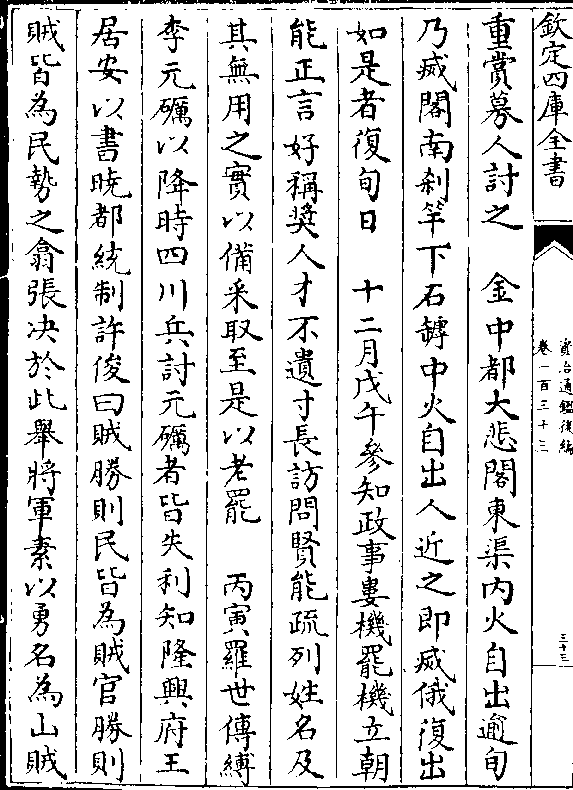 欽定四庫全書
資治通鑑後編
卷一百三十三
三十三
重賞募人討之　金中都大悲閣東渠内火自出逾旬
乃㓕閣南刹竿下石罅中火自出人近之即㓕俄復出
如是者復旬日　十二月戊午參知政事婁機罷機立朝
能正言好稱奬人才不遺寸長訪問賢能疏列姓名及
其無用之實以備采取至是以老罷　丙寅羅世傳縛
李元礪以降時四川兵討元礪者皆失利知隆興府王
居安以書曉都統制許俊曰賊勝則民皆為賊官勝則
賊皆為民勢之翕張决於此舉將軍素以勇名為山賊